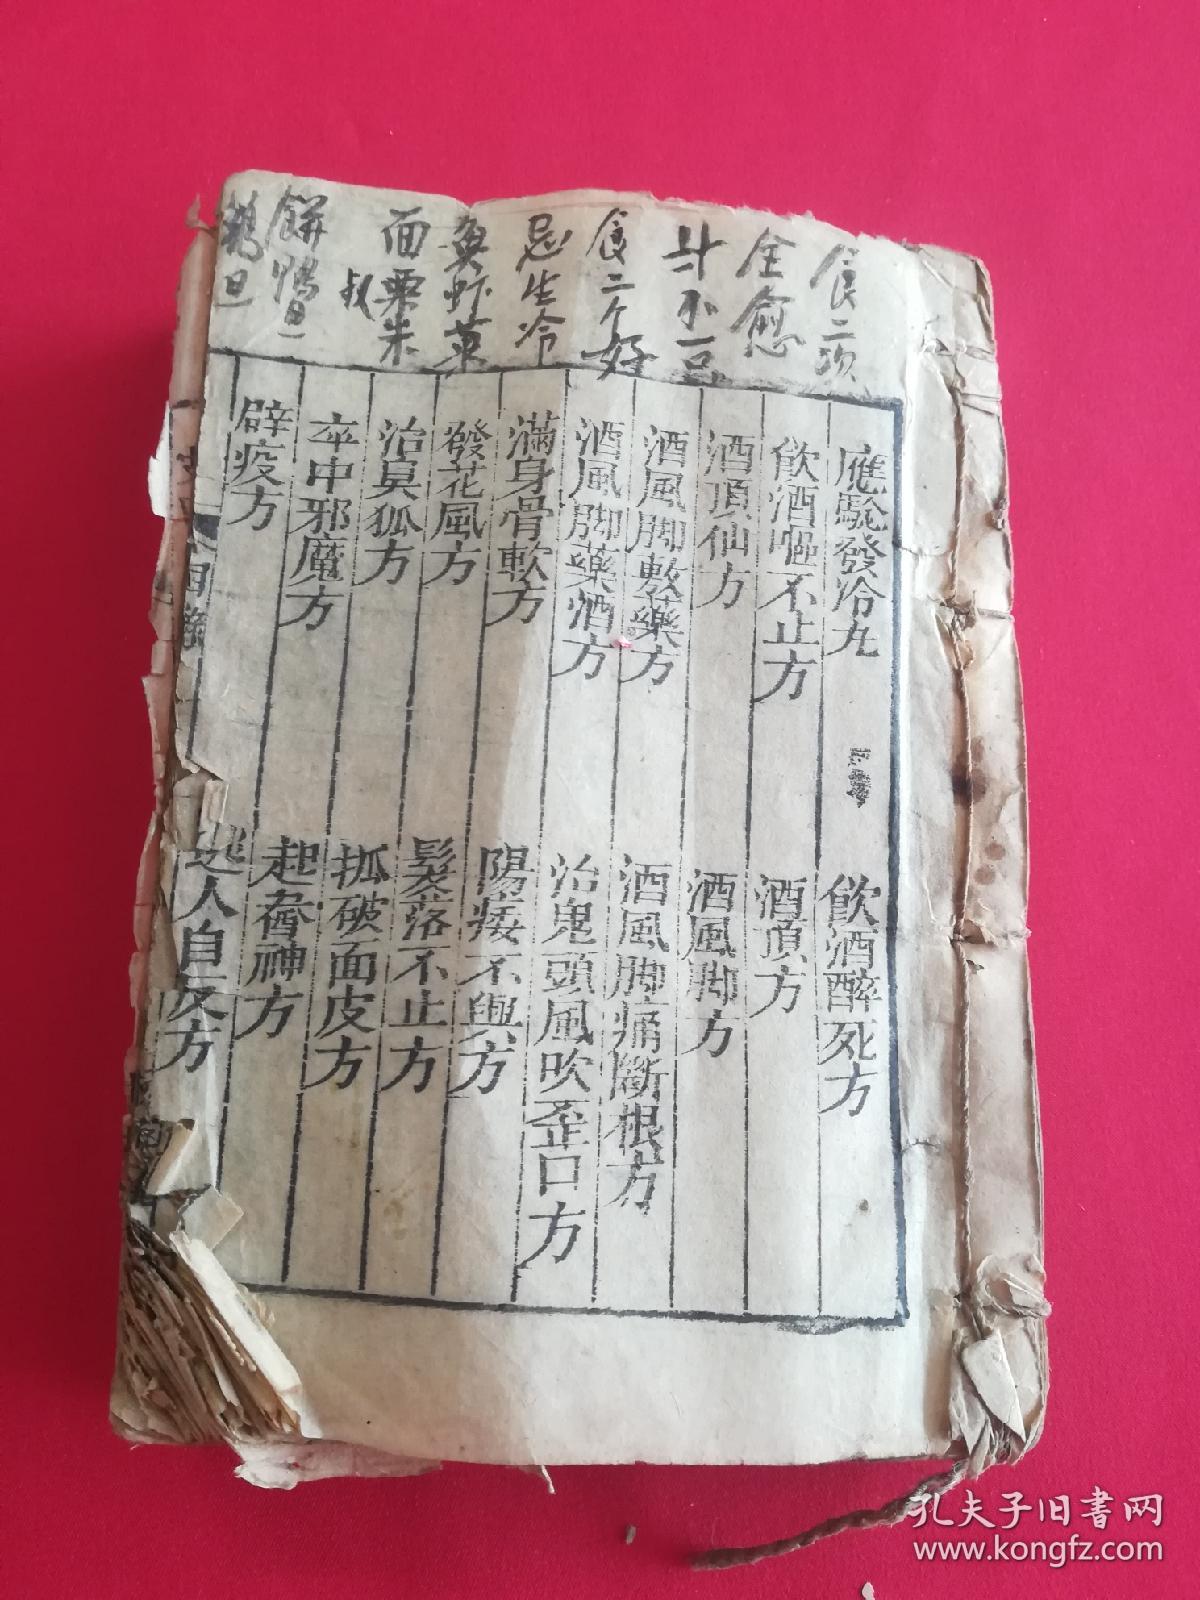 食二次
全愈
斗不一豆
食二个好
忌生冷
魚虾菜
面栗朱
叔
餅鴨旦
鵝旦
應驗發冷九
飲酒嗌不止方
酒頂仙方
酒風脚敷藥方
酒風脚藥酒方
滿身骨軟方
發花風方
治臭狐方
卒中邪魔方
辟疫方
飲酒醉死方
酒頂方
酒風脚方
酒風脚痛斷根方
治鬼頭風吹歪口方
陽痿不興方
髮落不止方
抓破面皮方
起喬神方
逃人自反方
目錄
孔夫子旧書网
www.kongfz.com